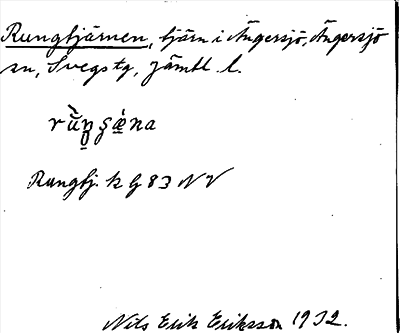 Rungtjärnen, tjärn i Ängersjö, Ängersjö
sn, Svegs tg, Jämtl. l.
Rungtj. k G 83 NV
Nils Erik Eriksson 1932.